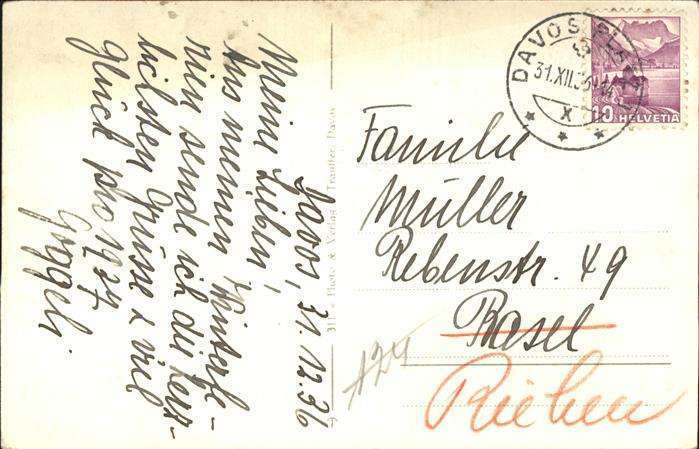 Davos, 31.12.36
Meine Lieben,
Aus meinen Winterfe-
rien sende ich die herz-
lichsten Grüsse & viel
Glück pro 1937
Göggeli.
Photo & Verlag Trauffer, Davos
DAVOS PLATZ
31.XII.36
X
10 HELVETIA
Familie
Müller
Rebenstr. 49
Basel
Riehen